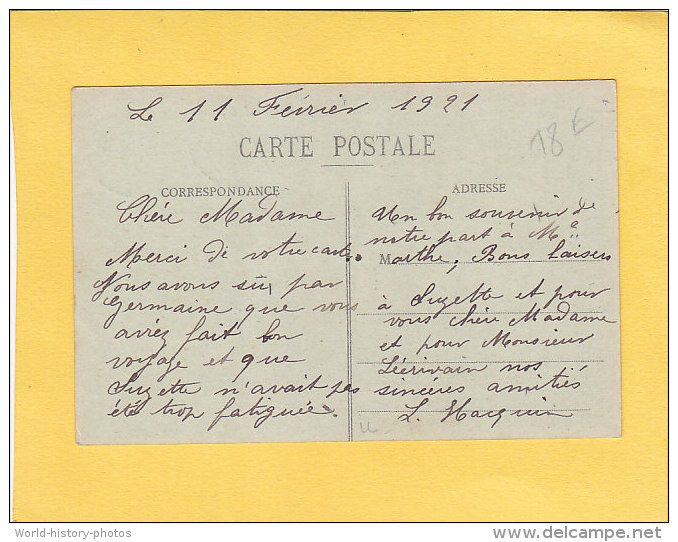 Le 11 Février 1921
18 €
CARTE POSTALE
CORRESPONDANCE
Chére Madame
Merci de votre carte.
Nous avons sû par
Germaine que vous
aviéz fait bon
voyage et que
Suzette n'avait pas
été trop fatiguée.
ADRESSE
Un bon souvenir de
notre part à Me
Marthe, Bons baisers
à Suzette et pour
vous chére Madame
et pour Monsieur
Lécrivain nos
sincéres amitiés
L. Hacquin
World-history-photos
delcampe.net